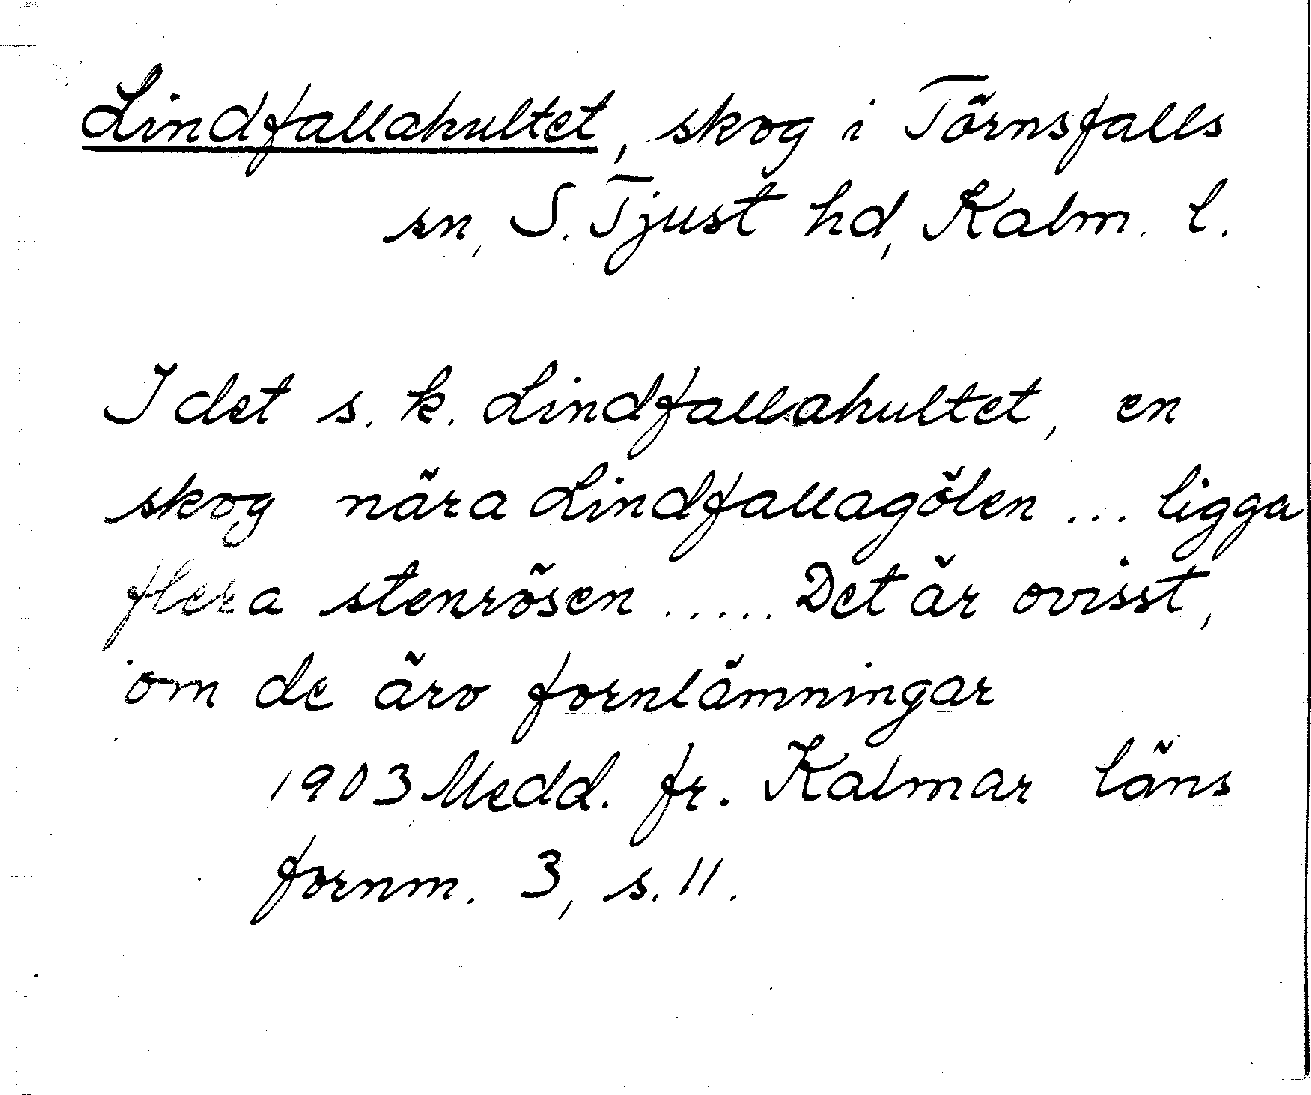 Lindfallahultet, skog i Törnsfalls
sn, S. Tjust hd, Kalm. l.
I det s. k. Lindfallahultet, en
skog nära Lindfallagölen ... ligga
flera stenrösen ..... Det är ovisst,
om de äro fornlämningar
1903 Medd. fr. Kalmar läns
fornm. 3, s. 11.